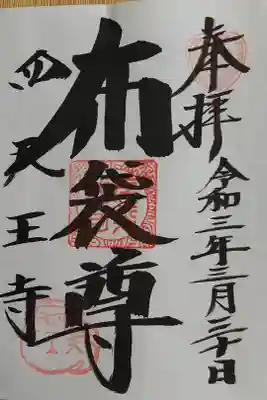 奉拝
令和三年三月二十日
布袋尊
四天王寺